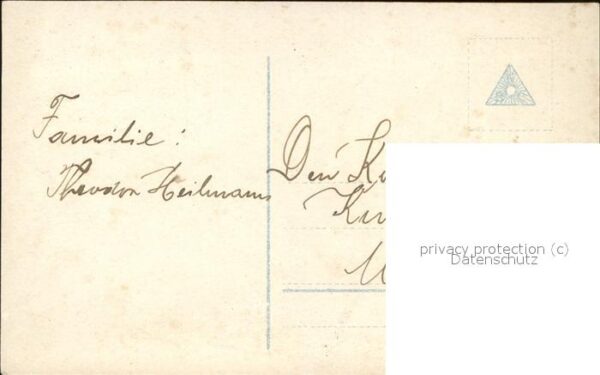 Familie:
Theodor Heilmann
Den
privacy protection (c)
Datenschutz